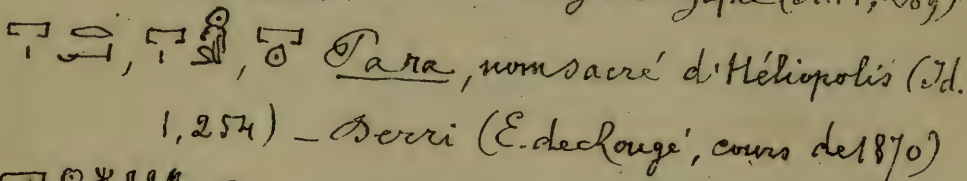 𓉐𓏤𓂋𓂝, 𓉐𓏤𓁛, 𓉐𓇳 Para, nom sacré d'Héliopolis (Id.
1,254) _ Derri (E. de Rougé, cours de 1870)